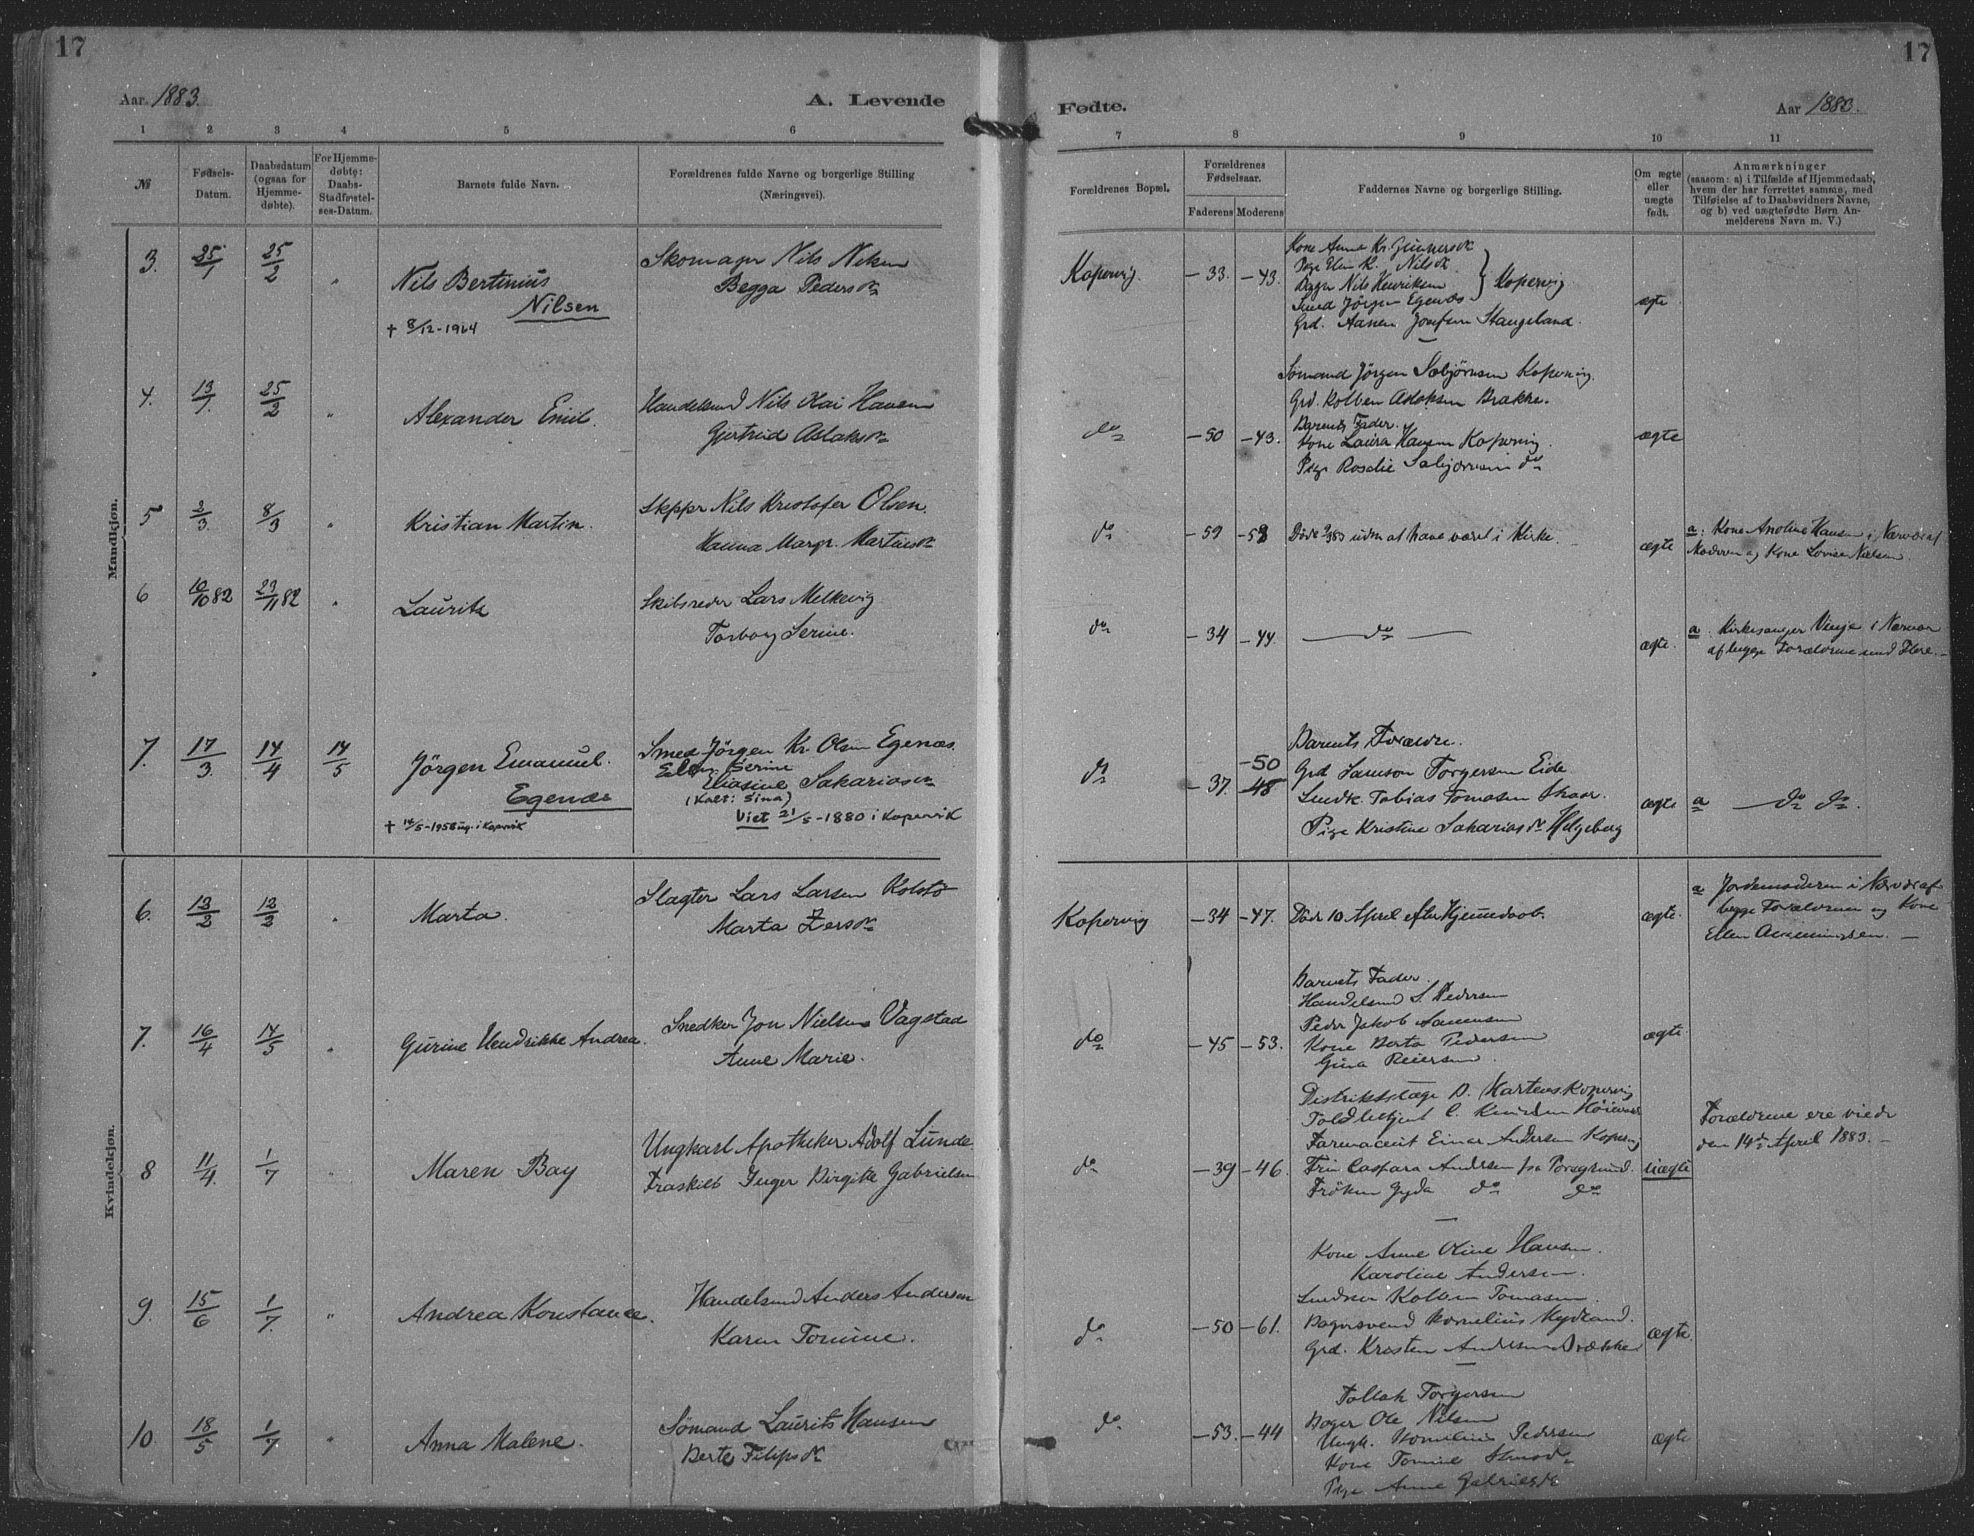 17
Aar 1883.
A. Levende
1 2 3 4 5 6
№
Fødsels-
Datum.
Daabsdatum
(ogsaa for
Hjemme-
døbte).
For Hjemme-
døbte:
Daabs-
Stadfæstel-
ses-Datum.
Barnets fulde Navn.
Forældrenes fulde Navne og borgerlige Stilling
(Næringsvei).
Mandkjøn.
3. 25/1 25/2 "
Nils Bertinius
Nilsen
† 8/12-1964
Nils
Begga Pedersdr
4. 13/1 25/2 "
Alexander Emil.
Handelsmd Nils Kai Hansen
Gjertrud Aslaksdr
5 2/3. 8/3 "
Kristian Martin.
Skppr Nils Kristofer Olsen.
Hanna Margr. Martinsdr
6 10/10 82 23/11 82 "
Lauritz
Skibsreder Lars Melkevig
Torborg Serine.
7. 17/3. 14/4 14/5
Jörgen Emanuel.
Egenæs
† 14/5-1958 ug. i Kopervik
Smed Jörgen Kr. Olsen Egenæs.
Serine
Eliasine Sakariasdr
(Kalt: Sina)
Viet 21/5-1880 i Kopervik
Kvindekjøn.
6. 13/2 12/3 "
Marta.
Slagter Lars Larsen Kolstö
Marta
7. 16/4 14/5 "
Gurine Hendrikke Andrea.
Snedker Jon Nielsen Vagstad
Anne Marie.
8 11/4. 1/7 "
Maren Bay
Ungkarl Apotheker Adolf Lunde
Fraskilt Inger Birgitte Gabrielsen
9. 15/6 1/7. "
Andrea Konstance.
Handelsmd Anders Andersen
Karen Tomine.
10. 18/5 1/7 "
Anna Malene.
Sömand Laurits Hansen
Berte Filipsdr
17
Fødte.
Aar 1883.
7 8 9 10 11
Forældrenes Bopæl.
Forældrenes
Fødselsaar.
Faderens Moderens
Faddernes Navne og borgerlige Stilling.
Om ægte
eller
uægte
født.
Anmærkninger
(saasom: a) i Tilfælde af Hjemmedaab,
hvem der har forrettet samme, med
Tilføielse af to Daabsvidners Navne,
og b) ved uægtefødte Børn An-
melderens Navn m. V.)
Kopervig. -33. -43.
Kone Anne Kr. Gunnersdr
Pige K. Nilsdr
Nils Henriksen
Smed Jörgen Egenæs
Kopervig
Grd. Aanen Josefsen Stangeland.
ægte
do -50 -43.
Sømand Jörgen Sæbjörnsen Kopervig.
Grd. Kolben Aslaksen Brække.
Barnets Fader.
Kone Laura Hansen Kopervig.
Pige Rosalie do
ægte
do -59 -58
Död uden at have været i Kirke.
ægte
a: Kone Anoline Hansen i Nærvær af
Moderen og Kone Lovise Nielsen.
do -34 -44.
do
ægte.
a. Kirkesanger Vinje i Nærvær
af begge Forældrene med Flere.
do -37. -50
48
Barnets Forældre.
Grd Samson Torgersen Eide
Tobias Tomasen Skaar.
Pige Kristine Sakariasdr Helgeberg
ægte
a do do.
Kopervig -34 -47.
Död 10 April efter Hjemmedaab.
ægte.
a Jordemoderen i Nærvær af
begge Forældrene og Kone
Ellen
do -45 -53.
Barnets Fader.
Handelsmd S. Pedersen
Peder Jakob
Kone Berta Pedersen
Gina Reiersen.
ægte
do -39 -46.
Distriktslæge D. Martens Kopervig
C. Knudsen
Farmaceut Einar Andersen Kopervig
Frk Caspara Andersen fra Porsgrund.
Fröken Gyda do do
uægte
Forældrene ere viede
den 14de April 1883.
do -50 -61.
Kone Anne Oline Hansen.
Karoline Andersen.
Kolben Tomasen.
Bagersvend Kornelius Mydland.
Grd. Kristen Andersen Brække
ægte.
do -53. -44
Tollak Torgersen
Bager Ole Nilsen
Ungk. Pedersen
Kone Tomine
Pige Anne Gabrielsdr
ægte